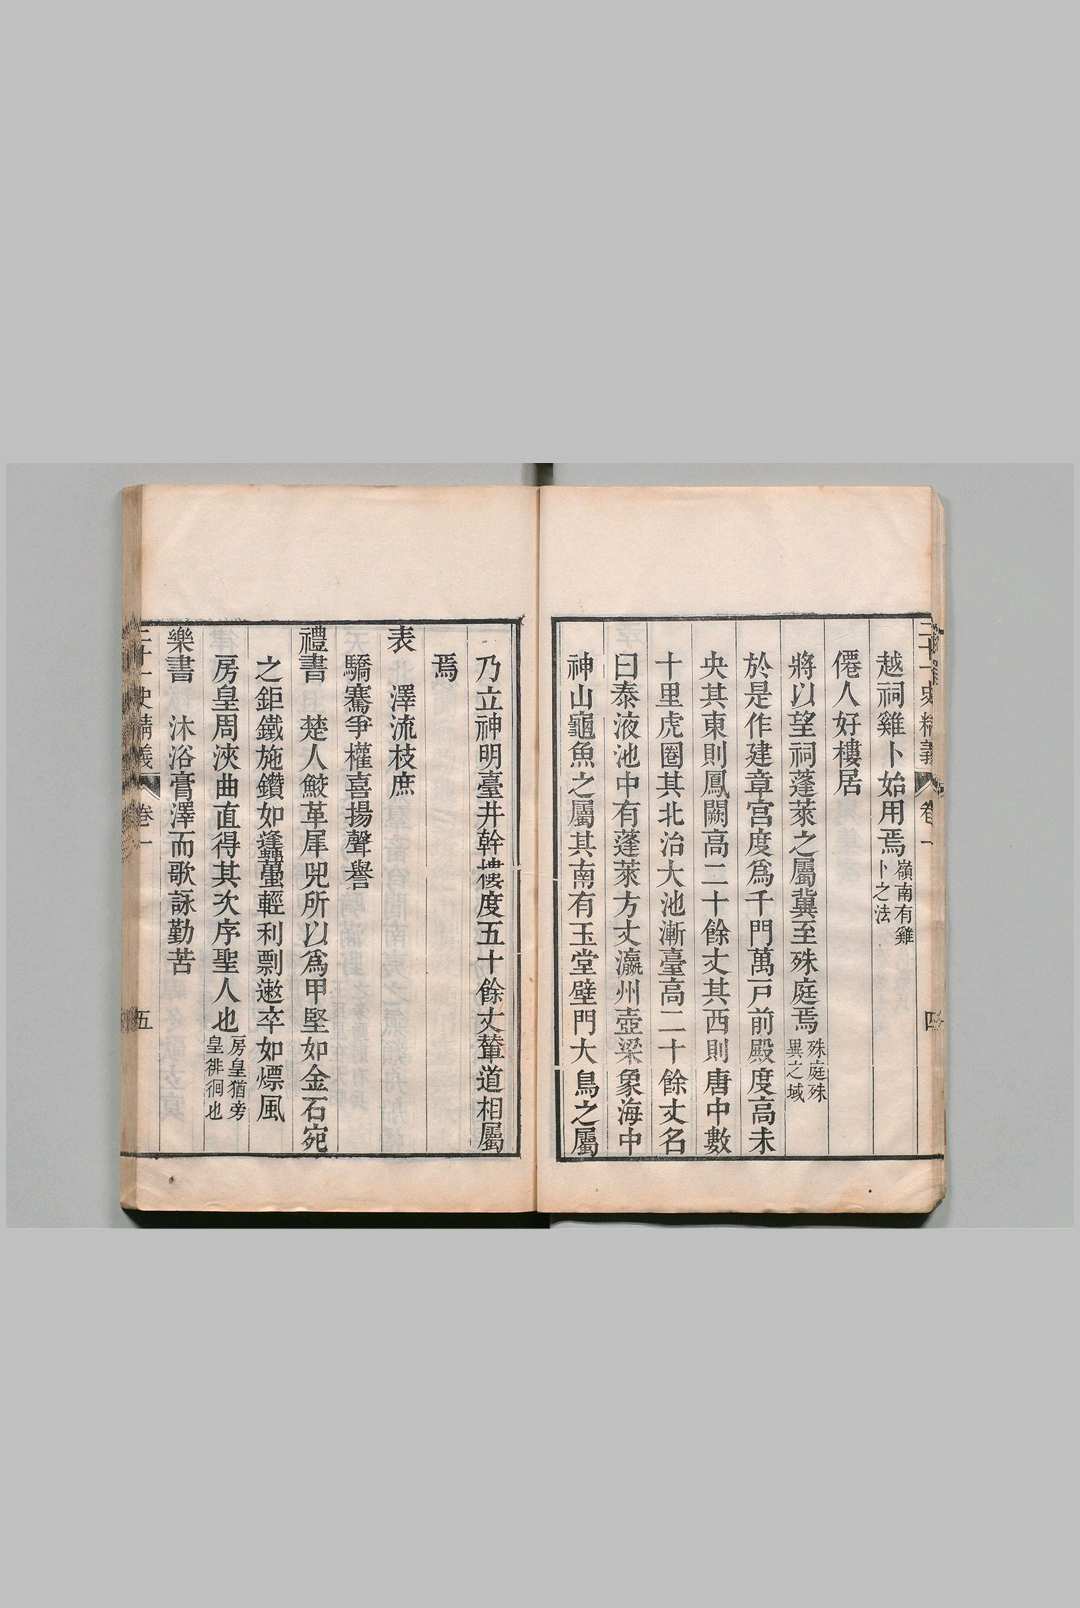 越祠雞卜始用焉嶺南有雞卜之法
僊人好樓居
將以望祠蓬萊之屬冀至殊庭焉殊庭殊異之域
於是作建章宮度爲千門萬戸前殿度高未
央其東則鳳闕高二十餘丈其西則唐中數
十里虎圈其北治大池漸臺高二十餘丈名
曰泰液池中有蓬萊方丈瀛州壺梁象海中
神山龜魚之屬其南有玉堂壁門大鳥之屬
乃立神明臺井幹樓度五十餘丈輦道相屬
焉
表　澤流枝庶
驕騫爭權喜揚聲譽
禮書　楚人鮫革犀兕所以爲甲堅如金石宛
之鉅鐵施鑽如蠭蠆輕利剽遬卒如熛風
房皇周浹曲直得其次序聖人也房皇猶旁皇徘徊也
樂書　沐浴膏澤而歌詠勤苦
二十一史精義　卷一　五